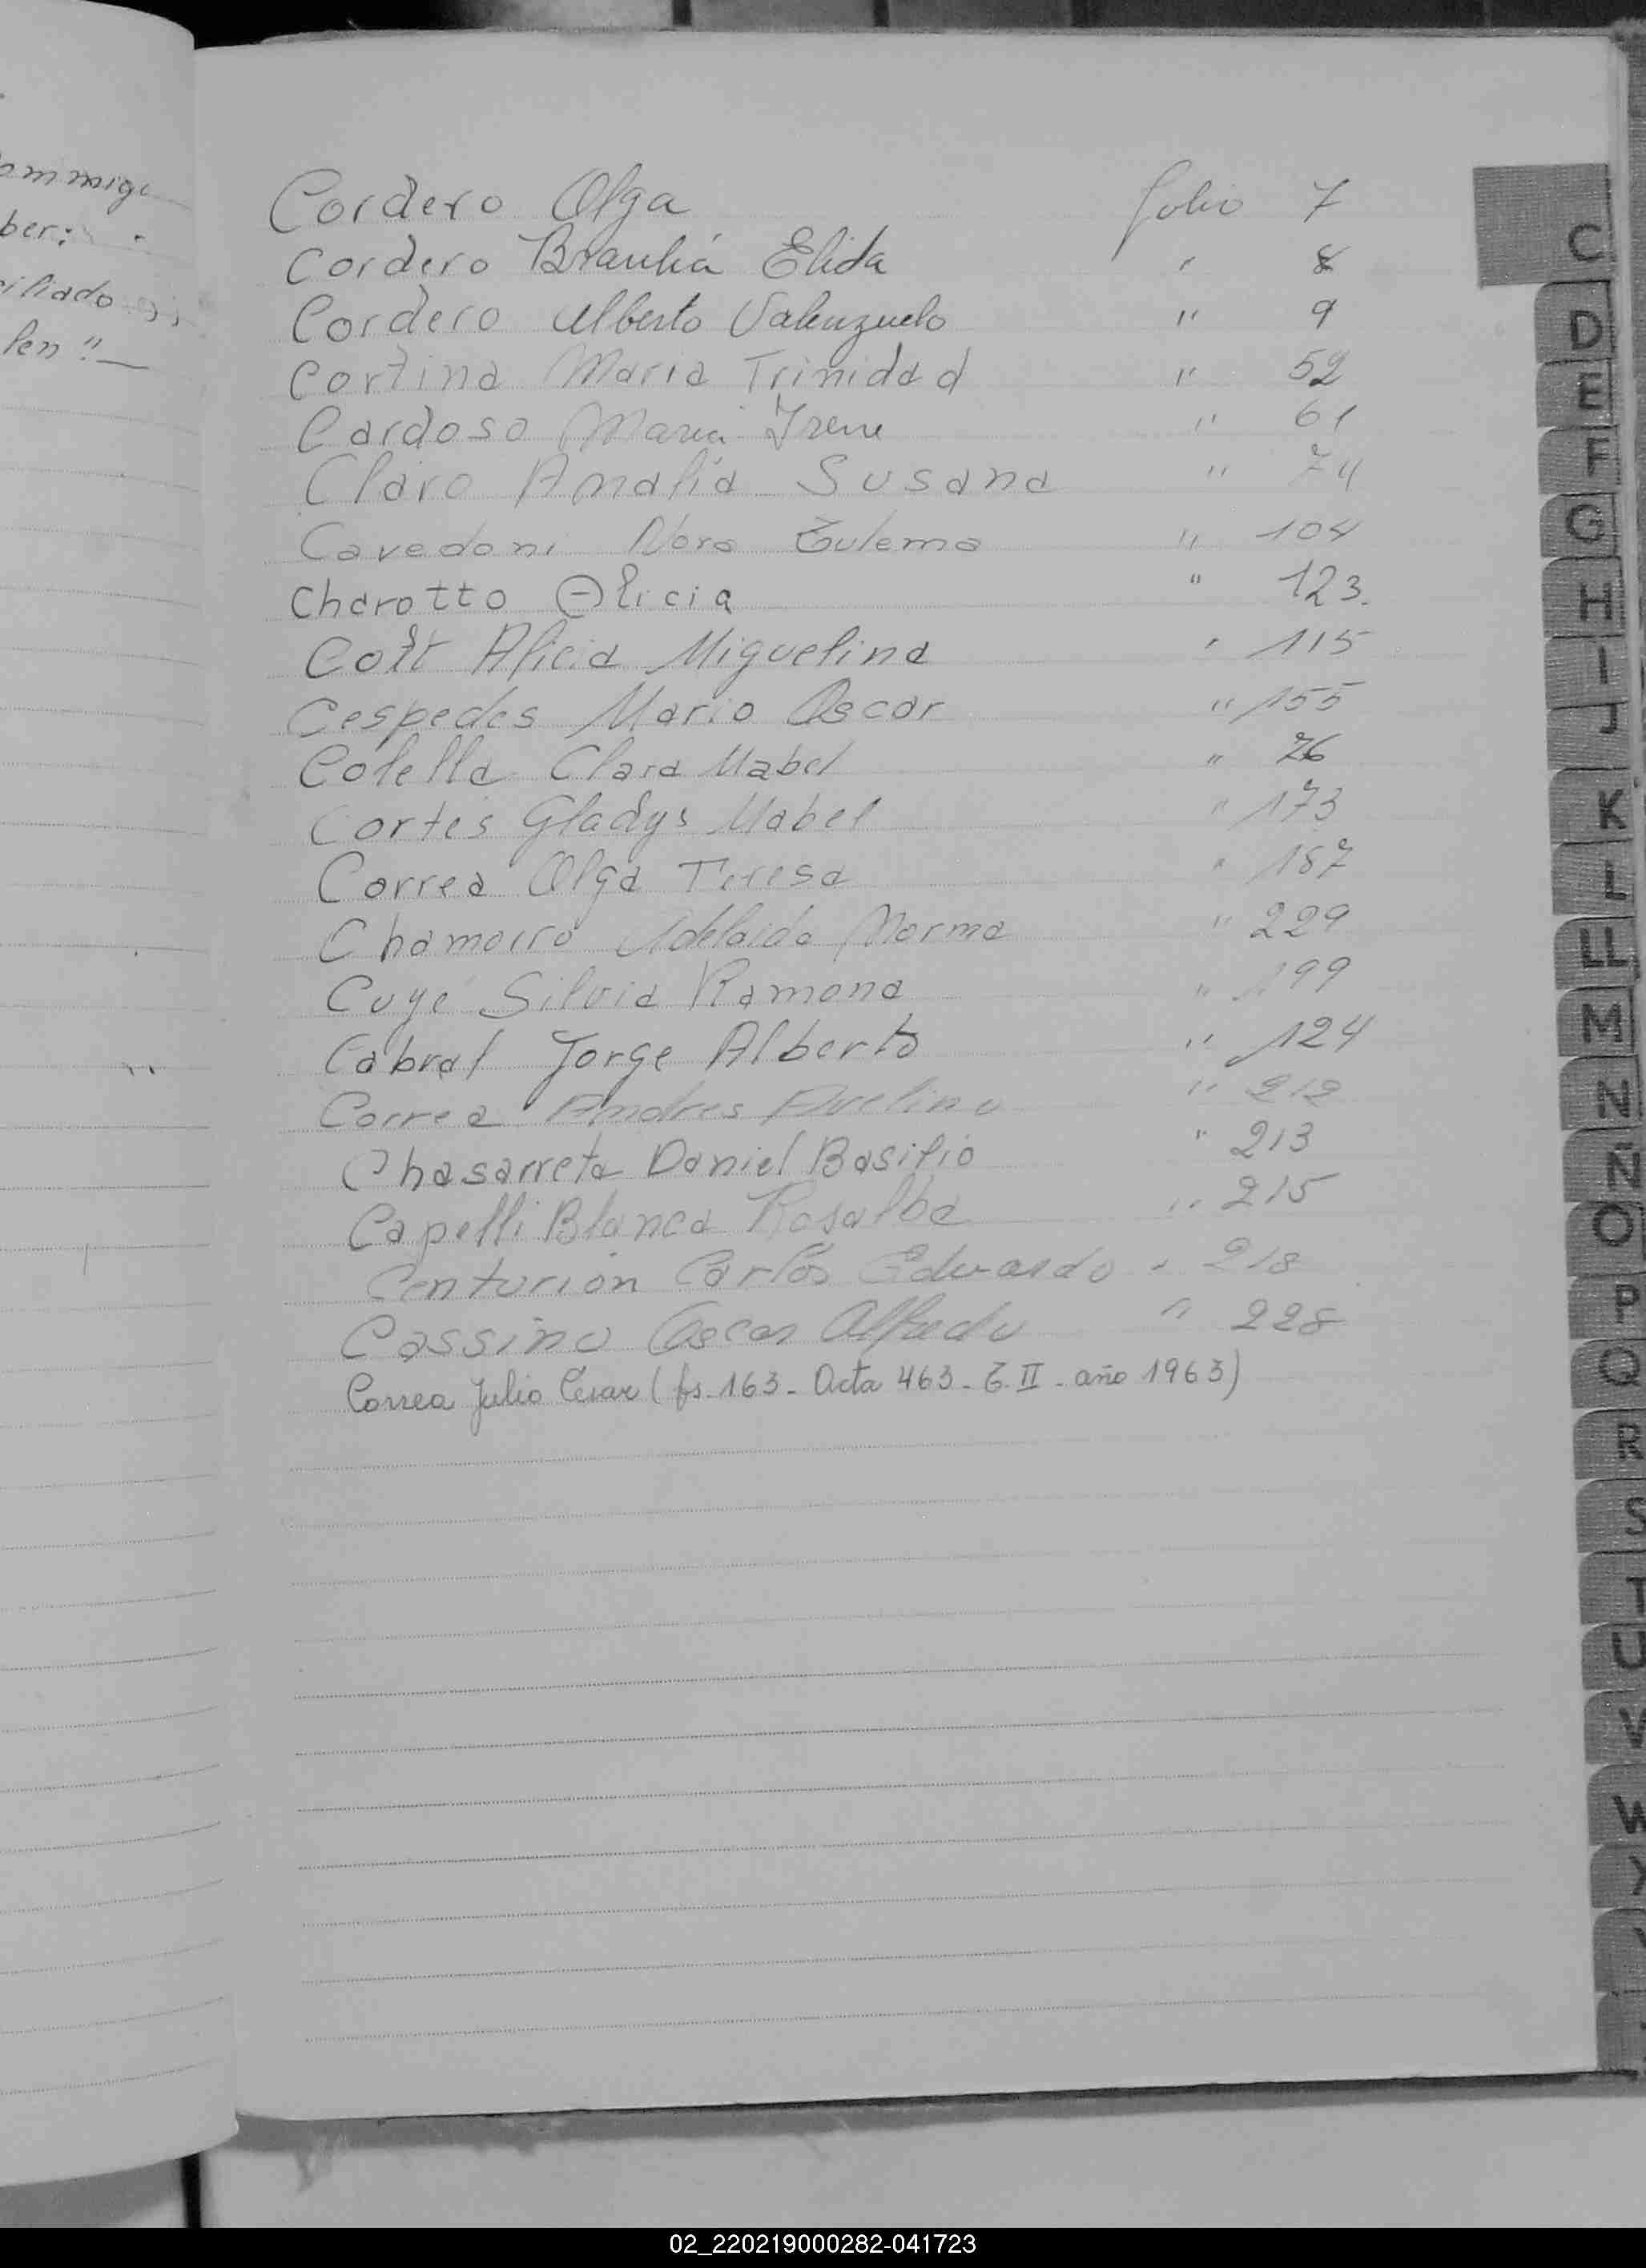 ommigo
ber:
iliado
len "
Cordero Olga folio 7
Cordero Braulia Elida " 8
Cordero Alberto Valenzuelo " 9
Cortina Maria Trinidad " 52
Cardoso Maria Irene " 61
Claro Amalia Susana " 74
Cavedoni Nora Zulema " 104
Charotto Alicia " 123.
Alicia Miguelina " 115
Cespedes Mario Oscar " 155
Colella Clara Mabel " 76
Cortés Gladys Mabel " 173
Correa Olga Teresa " 187
Chamorro Adelaida Norma " 229
Cuyé Silvia Ramona " 199
Cabral Jorge Alberto " 124
Correa Andres Avelino " 212
Chasarreta Daniel Basilio " 213
Capelli Blanca Rosalba " 215
Centurión Carlos Eduardo " 218
Cassino Oscar Alfredo " 228
Correa Julio Cesar (fs. 163 - Acta 463 - T. II - año 1963)
C
D
E
F
G
H
I
J
K
L
LL
M
N
Ñ
O
P
Q
R
S
T
U
V
W
X
Y
02_220219000282-041723